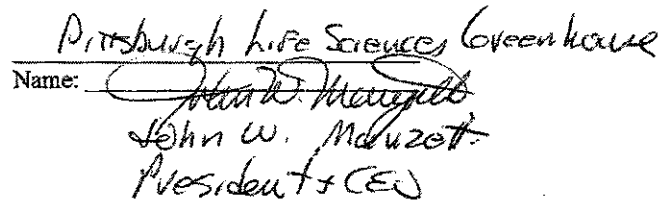 Pittsburgh Life Sciences Greenhouse
Name: John W. Manzetti
John W. Manzetti
President & CEO